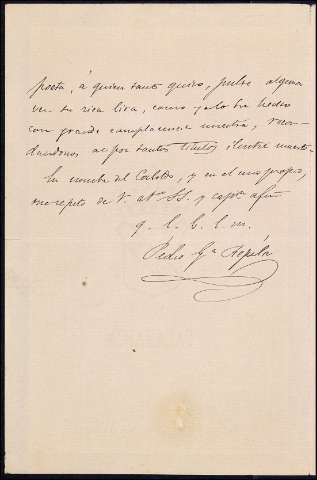 poeta, á quien tanto quiso, pulse alguna
vez su rica lira, como ya lo ha hecho
con grande complacencia nuestra, recor-
dándonos al por tantos títulos ilustre muerto.
En nombre del Cabildo, y en el mio propio,
me repito de V. atº. SS. y capⁿ. afmo
q. l. b. l. m.
Pedro Gª